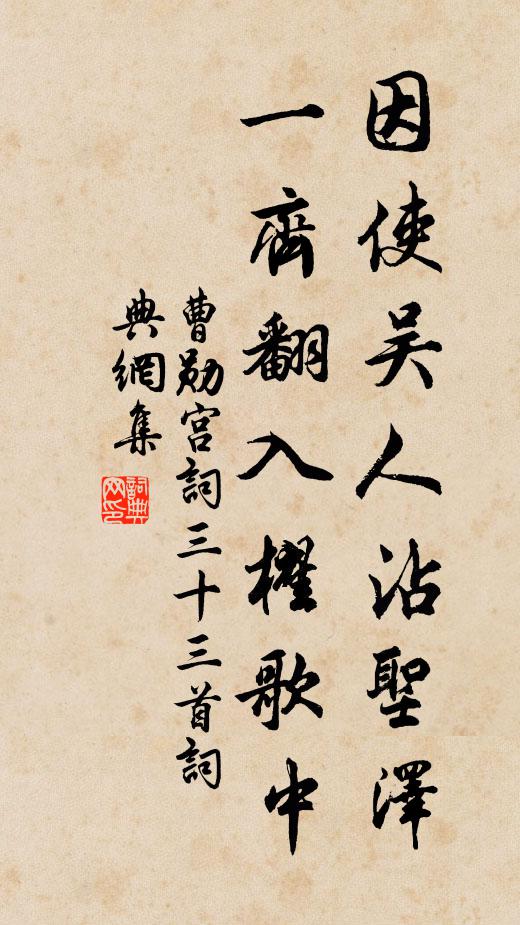 因使吴人沾聖澤
一齊翻入櫂歌中
曹勛宮詞三十三首詞
典網集
詞典
网印